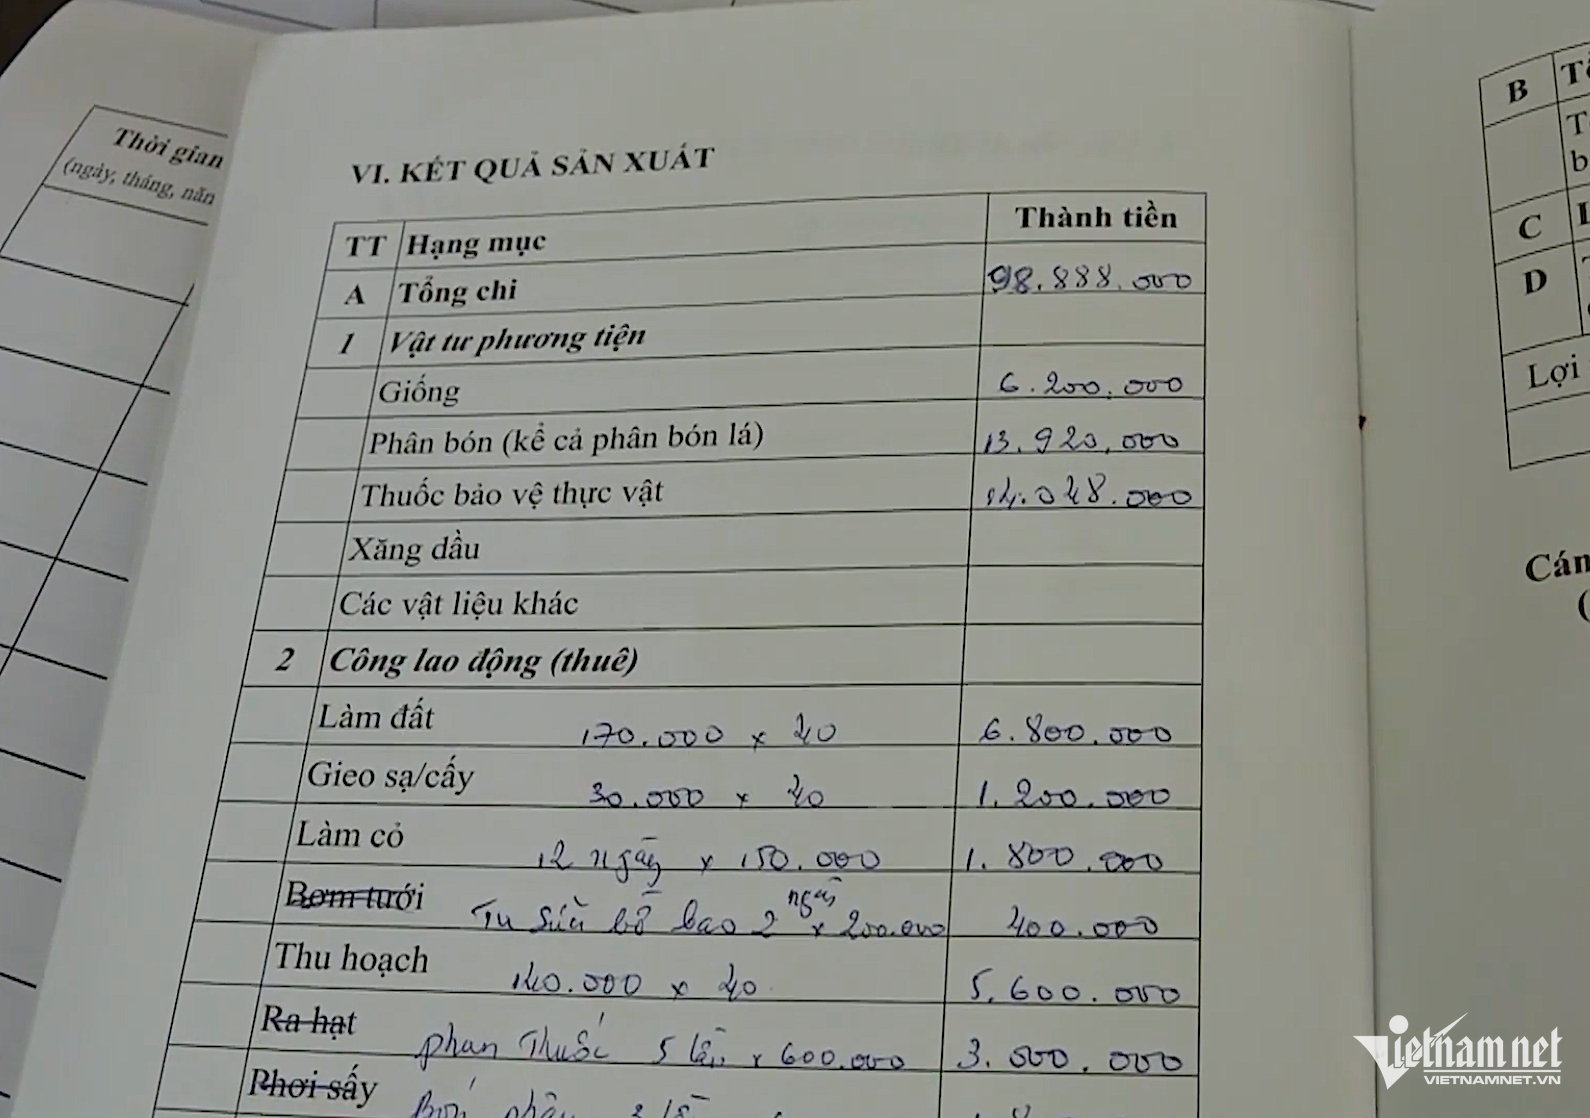 Thời gian
(ngày, tháng, năn
VI. KẾT QUẢ SẢN XUẤT
TT Hạng mục Thành tiền
A Tổng chi 98.888.000
1 Vật tư phương tiện
Giống 6.200.000
Phân bón (kể cả phân bón lá) 13.920.000
Thuốc bảo vệ thực vật 14.048.000
Xăng dầu
Các vật liệu khác
2 Công lao động (thuê)
Làm đất 170.000 x 40 6.800.000
Gieo sạ/cấy 30.000 x 40 1.200.000
Làm cỏ 12 ngày x 150.000 1.800.000
Bơm tưới Tu sửa bờ bao 2 ngày x 200.000 400.000
Thu hoạch 140.000 x 40 5.600.000
Ra hạt phun thuốc 5 lần x 600.000 3.000.000
Phơi sấy Bón phân 3 lần
B
C
D
Lợi
Cán
Vietnamnet
VIETNAMNET.VN